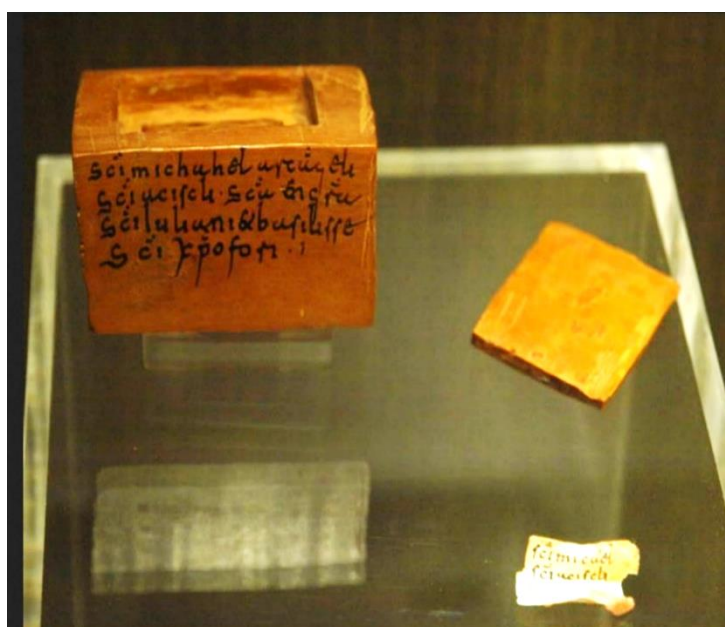 Sci michahel arcangeli
Sci aciscli · Sca engra
Sci iuliani & basilisse
Sci xpofori
sci micael
sci aciscli